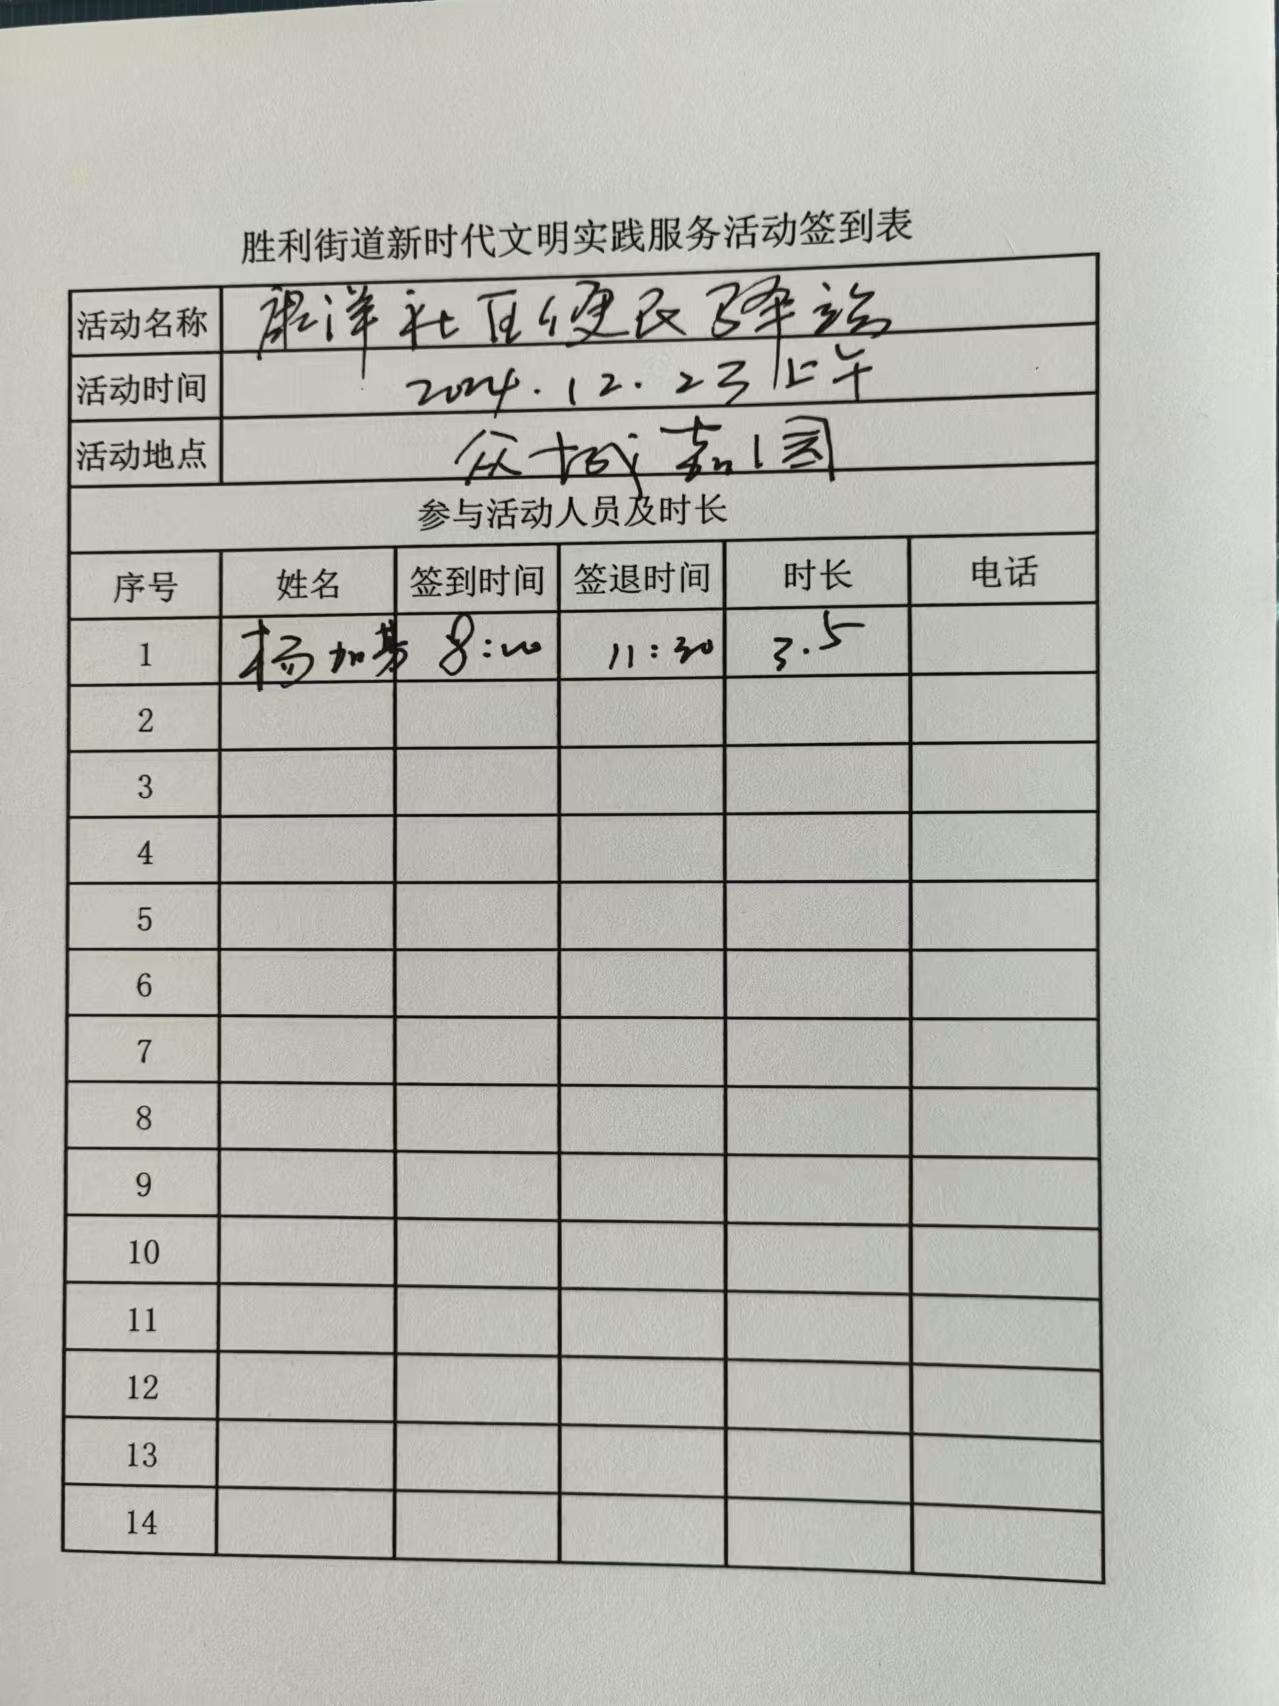 胜利街道新时代文明实践服务活动签到表
活动名称 康洋社区便民驿站
活动时间 2024.12.23上午
活动地点 众城嘉园
参与活动人员及时长
序号 姓名 签到时间 签退时间 时长 电话
1 杨加 8:00 11:30 3.5
2
3
4
5
6
7
8
9
10
11
12
13
14